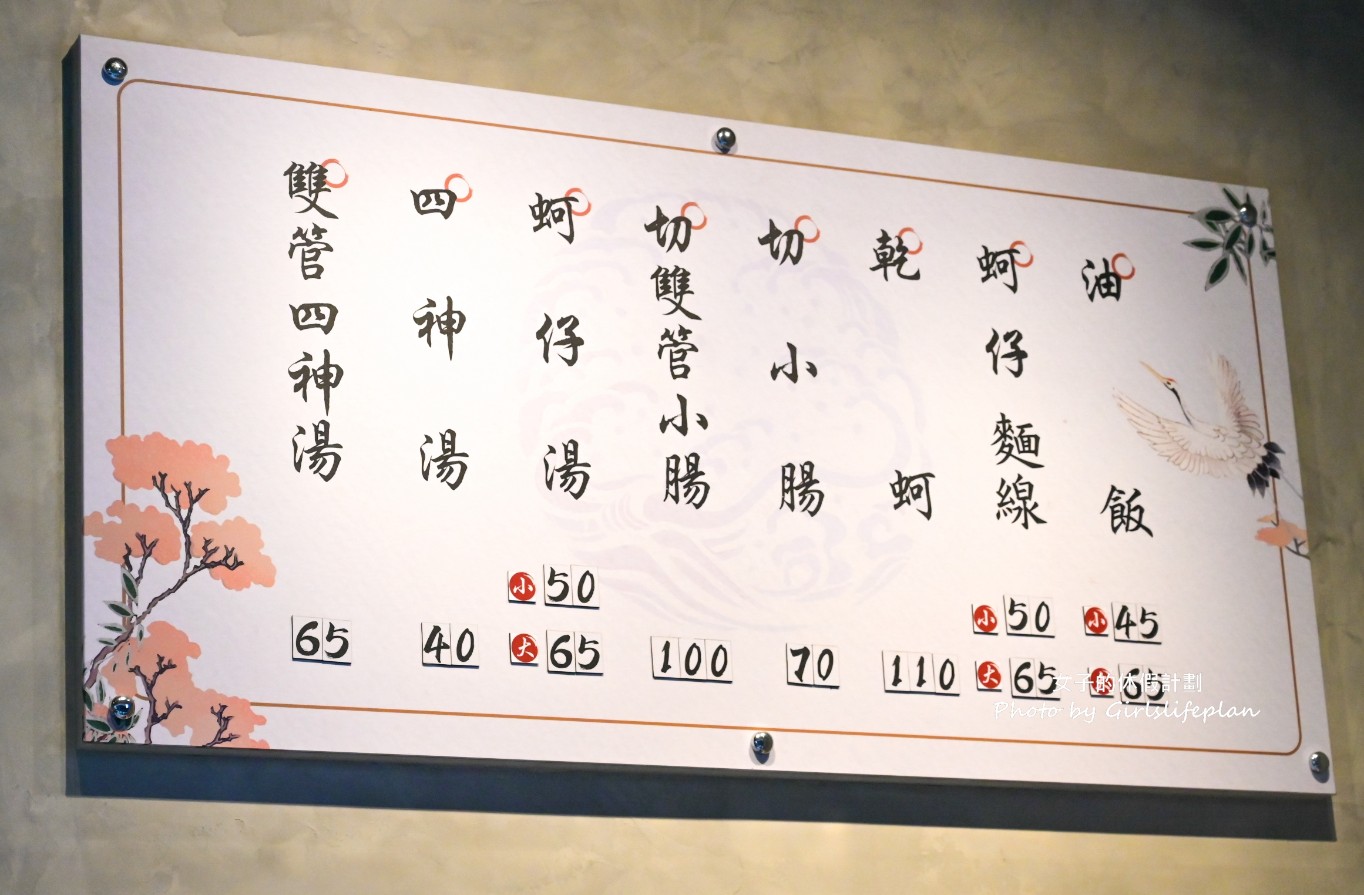 油飯
小 45
大 65
蚵仔麵線
小 50
大 65
乾蚵
110
切小腸
70
切雙管小腸
100
蚵仔湯
小 50
大 65
四神湯
40
雙管四神湯
65
女子的休假計劃
Photo by Girlslifeplan